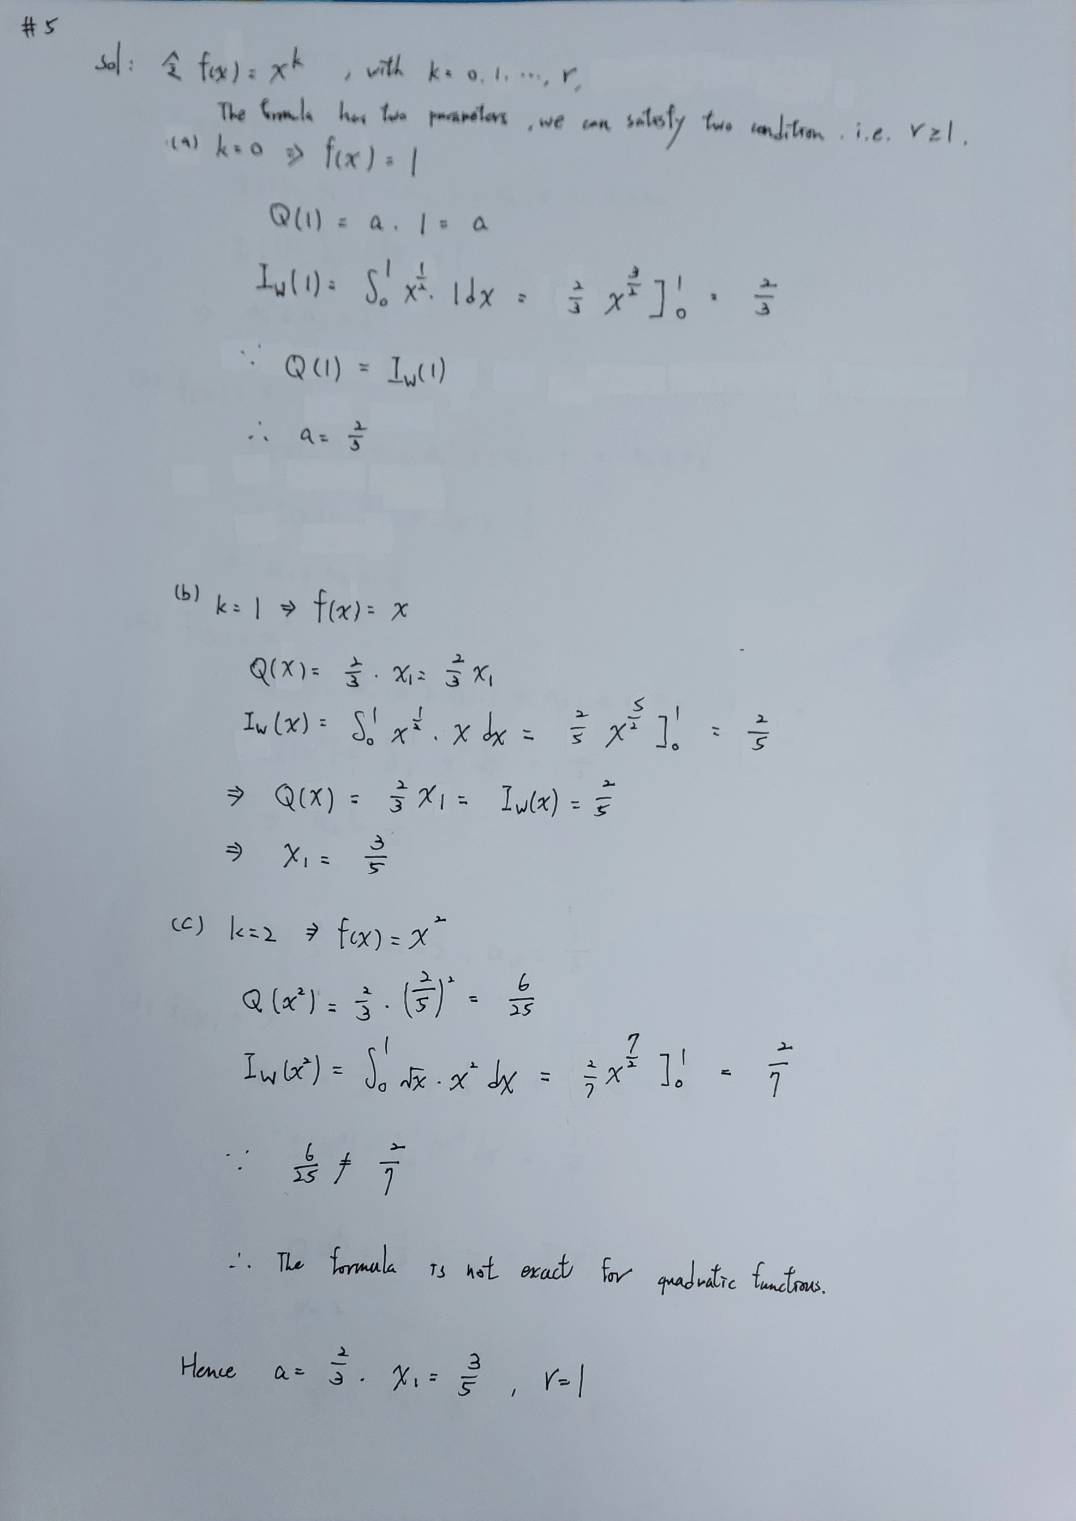 #5
sol: 令 f(x) = x^k , with k = 0, 1, ..., r,
The formula has two parameters, we can satisfy two condition. i.e. r ≥ 1.
(a) k=0 ⇒ f(x) = 1
Q(1) = a · 1 = a
I_w(1) = ∫_0^1 x^{1/2} · 1dx = 2/3 x^{3/2} ]_0^1 = 2/3
∵ Q(1) = I_w(1)
∴ a = 2/3
(b) k=1 ⇒ f(x) = x
Q(x) = 2/3 · x_1 = 2/3 x_1
I_w(x) = ∫_0^1 x^{1/2} · x dx = 2/5 x^{5/2} ]_0^1 = 2/5
⇒ Q(x) = 2/3 x_1 = I_w(x) = 2/5
⇒ x_1 = 3/5
(c) k=2 ⇒ f(x) = x^2
Q(x^2) = 2/3 · (2/5)^2 = 6/25
I_w(x^2) = ∫_0^1 √x · x^2 dx = 2/7 x^{7/2} ]_0^1 = 2/7
∵ 6/25 ≠ 2/7
∴ The formula is not exact for quadratic functions.
Hence a = 2/3 . x_1 = 3/5 , r=1